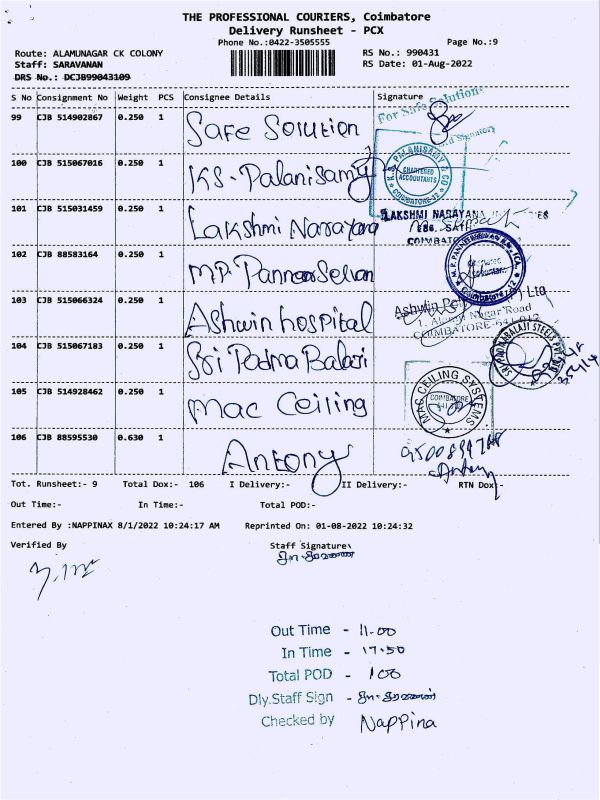 THE PROFESSIONAL COURIERS, Coimbatore
Delivery Runsheet - PCX
Phone No.:0422-3505555
Page No.:9
Route: ALAMUNAGAR CK COLONY
RS No.: 990431
Staff: SARAVANAN
RS Date: 01-Aug-2022
DRS No.: DCJB99043109
S No Consignment No Weight PCS Consignee Details Signature
99 CJB 514902867 0.250 1 Safe Solution
For Safe Solution
100 CJB 515067016 0.250 1 KS-Palanisamy
CHARTERED
ACCOUNTANTS
COIMBATORE-12
101 CJB 515031459 0.250 1 Lakshmi Narayana
LAKSHMI NARAYANA
102 CJB 88583164 0.250 1 M.P. PanneerSelvan
103 CJB 515066324 0.250 1 Ashwin hospital
1, Alamu Nagar Road
COIMBATORE-641 012
104 CJB 515067183 0.250 1 Sri Padma Balaji
105 CJB 514928462 0.250 1 Mac Ceiling
MAC CEILING SYSTEMS
COIMBATORE
106 CJB 88595530 0.630 1 Antony
Antony
Tot. Runsheet:- 9 Total Dox:- 106 I Delivery:- II Delivery:- RTN Dox:-
Out Time:- In Time:- Total POD:-
Entered By :NAPPINAX 8/1/2022 10:24:17 AM Reprinted On: 01-08-2022 10:24:32
Verified By
Staff Signature:
Out Time - 11.00
In Time - 17.50
Total POD - 106
Dly.Staff Sign -
Checked by Nappina